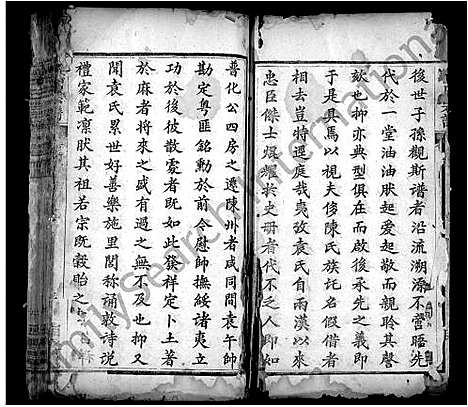 後世子孫觀斯譜者沿流溯源不啻晤先
代於一堂油油肰起愛起敬而親聆其聲
欬也抑亦典型俱在而啟後承先之義即
于是具焉以視夫侈陳氏族託名假借者
相去豈特逕庭哉夷攷袁氏自兩漢以來
忠臣傑士焜耀於史冊者代不乏人即如
普化公四房之遷陳州者咸同間袁午帥
勘定粵匪銘勳於前 慰帥撫綏諸夷立
功於後彼散處者既如此發祥定卜土著
於麻者將來之盛有過之無不及也抑又
聞袁氏累世好善樂施里閭稱誦敦詩說
禮家範凛肰其祖若宗既榖胎之
FamilySearch International